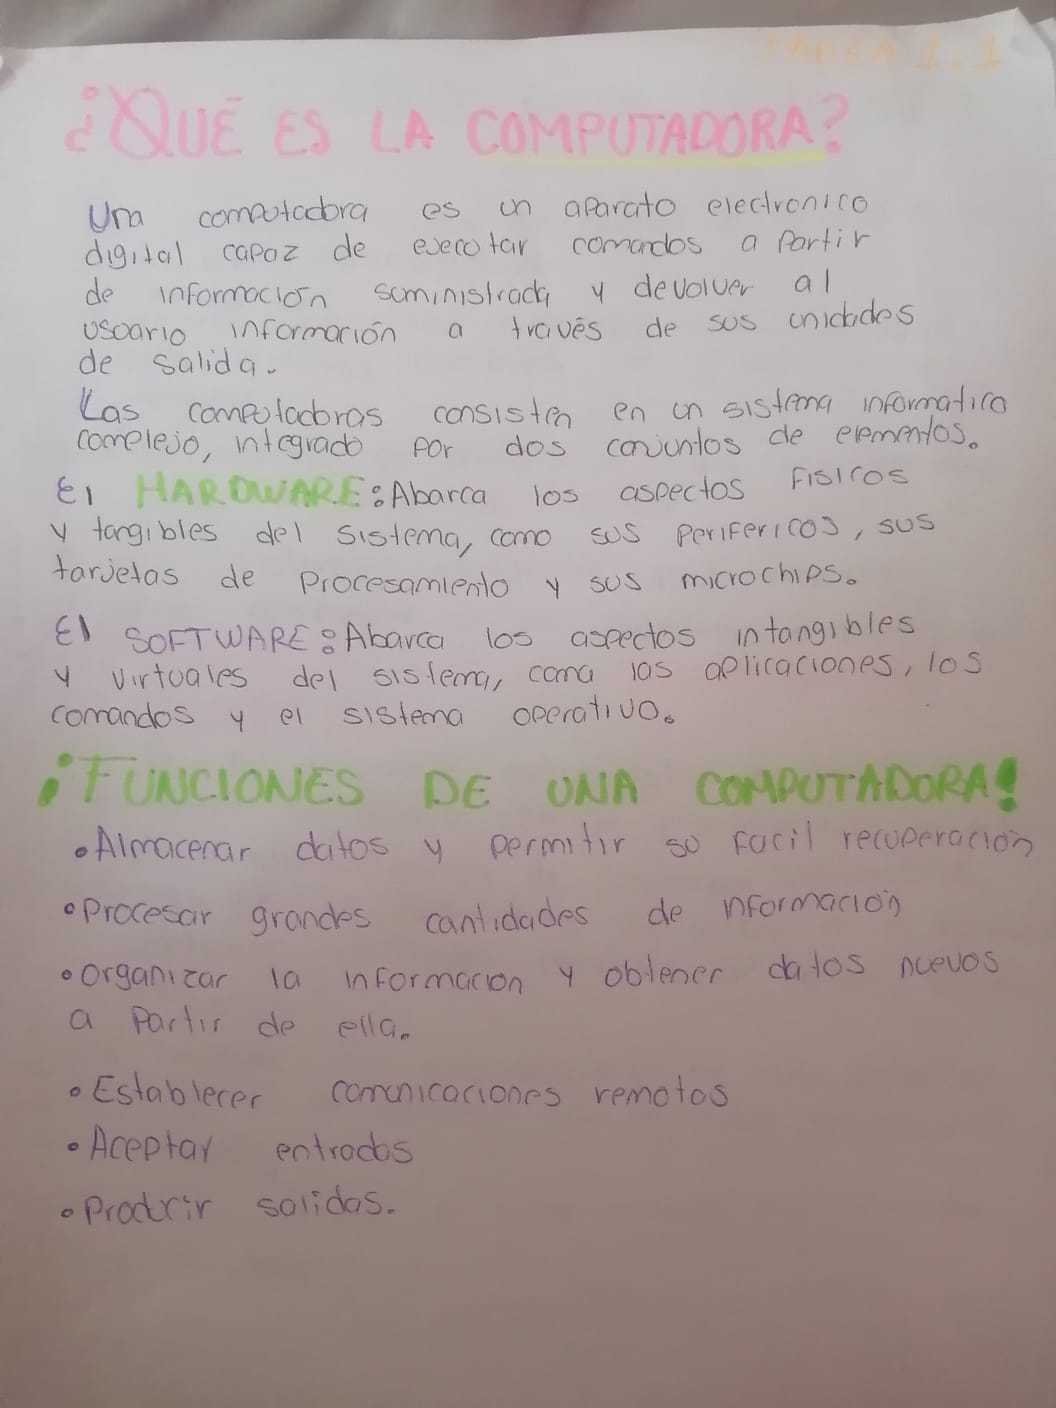 TAREA 1.1
¿QUÉ ES LA COMPUTADORA?
Una computadora es un aparato electronico
digital capaz de ejecutar comandos a partir
de información suministrada y devolver al
usuario información a través de sus unidades
de salida.
Las computadoras consisten en un sistema informatico
complejo, integrado por dos conjuntos de elementos.
El HARDWARE: Abarca los aspectos Fisicos
y tangibles del sistema, como sus perifericos, sus
tarjetas de procesamiento y sus microchips.
El SOFTWARE: Abarca los aspectos intangibles
y virtuales del sistema, como las aplicaciones, los
comandos y el sistema operativo.
¡FUNCIONES DE UNA COMPUTADORA!
• Almacenar datos y permitir su facil recuperación
• Procesar grandes cantidades de información
• Organizar la informacion y obtener datos nuevos
a partir de ella.
• Establecer comunicaciones remotas
• Aceptar entradas
• Producir salidas.